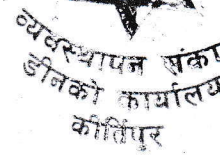 व्यवस्थापन संका
डीनको कार्यालय
कीर्तिपुर